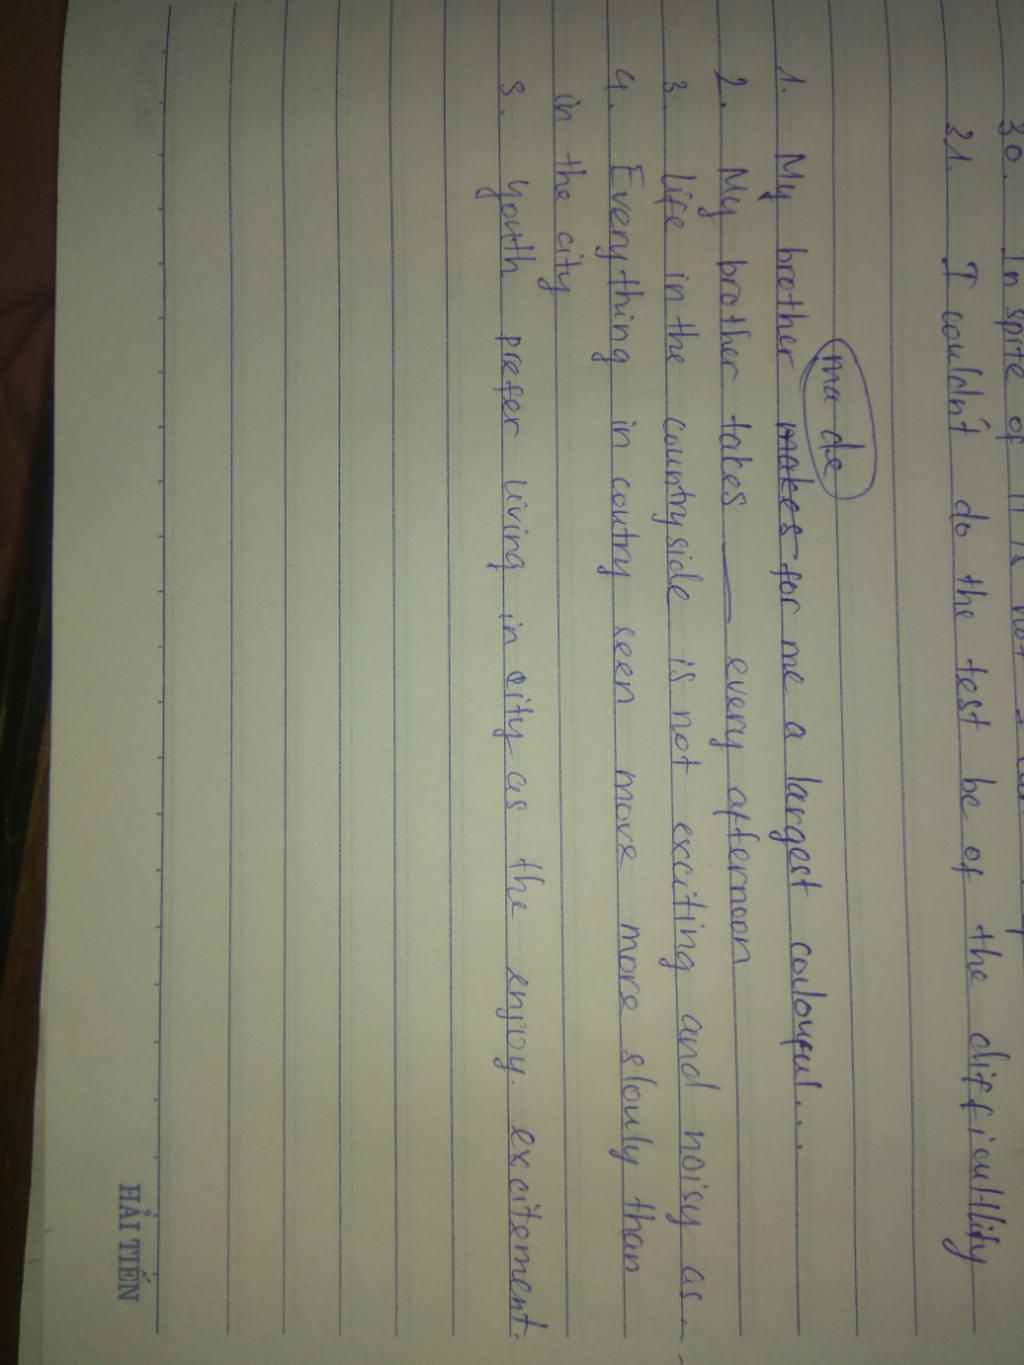 30. In spite of it is not
31. I couldn't do the test be of the difficultlity
made
1. My brother makes for me a largest coulouful....
2. My brother takes ___ every afternoon
3. life in the countryside is not exciting and noisy as...
4. Everything in coutry seen move more slouly than
in the city
5. youth prefer living in city as the enjoy excitement.
HẢI TIẾN